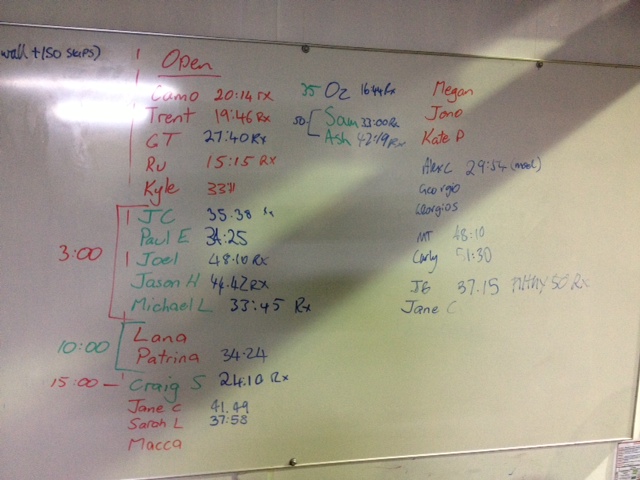 wall + 150 skips)
Open
Camo 20:14 rx
Trent 19:46 Rx
GT 27:40 Rx
Ru 15:15 Rx
Kyle
JC 35:38
Paul E 34:25
3:00
Joel 48:10 Rx
Jason H 44:42 Rx
Michael L 33:45 Rx
Lana
10:00
Patrina 34:24
15:00 - Craig S 24:10 Rx
Jane C 41.49
Sarah L 37:58
Macca
35 Oz 16:44 Rx
50 Sam 33:00 Rx
Ash 42:19 Rx
Megan
Jono
Kate P
Alex C 29:54 (mod)
Georgia
Georgios
MT 48:10
Carly 51:30
JB 37.15 Filthy 50 Rx
Jane C